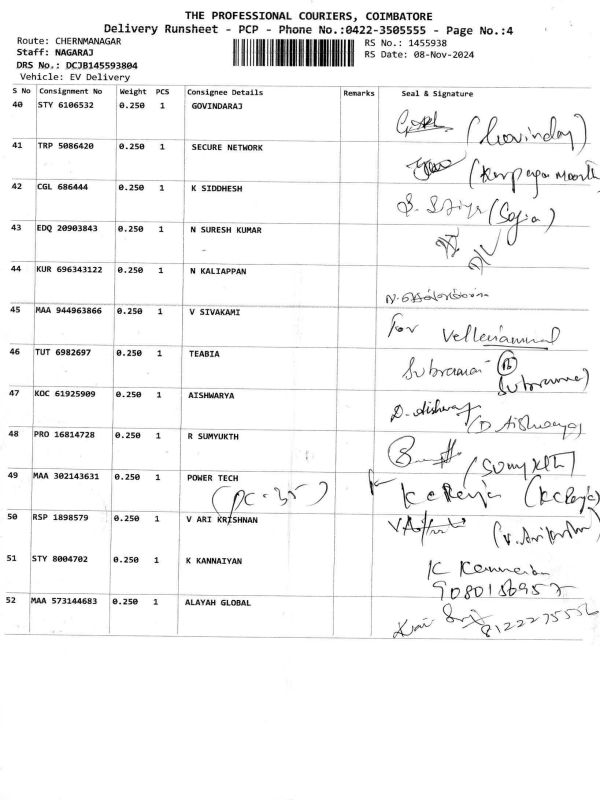 THE PROFESSIONAL COURIERS, COIMBATORE
Delivery Runsheet - PCP - Phone No.:0422-3505555 - Page No.:4
Route: CHERNMANAGAR RS No.: 1455938
Staff: NAGARAJ RS Date: 08-Nov-2024
DRS No.: DCJB145593804
Vehicle: EV Delivery
S No Consignment No Weight PCS Consignee Details Remarks Seal & Signature
40 STY 6106532 0.250 1 GOVINDARAJ
(Govindaraj)
41 TRP 5086420 0.250 1 SECURE NETWORK
42 CGL 686444 0.250 1 K SIDDHESH
43 EDQ 20903843 0.250 1 N SURESH KUMAR
44 KUR 696343122 0.250 1 N KALIAPPAN
45 MAA 944963866 0.250 1 V SIVAKAMI
For Vellaiammal
46 TUT 6982697 0.250 1 TEABIA
47 KOC 61925909 0.250 1 AISHWARYA
D. Aishwarya
(D Aishwarya)
48 PRO 16814728 0.250 1 R SUMYUKTH
(Sumyukth)
49 MAA 302143631 0.250 1 POWER TECH
(PC-35) K C Renja (K C Renja)
50 RSP 1898579 0.250 1 V ARI KRISHNAN
51 STY 8004702 0.250 1 K KANNAIYAN
K Kannaian
9080156957
52 MAA 573144683 0.250 1 ALAYAH GLOBAL
8122275556